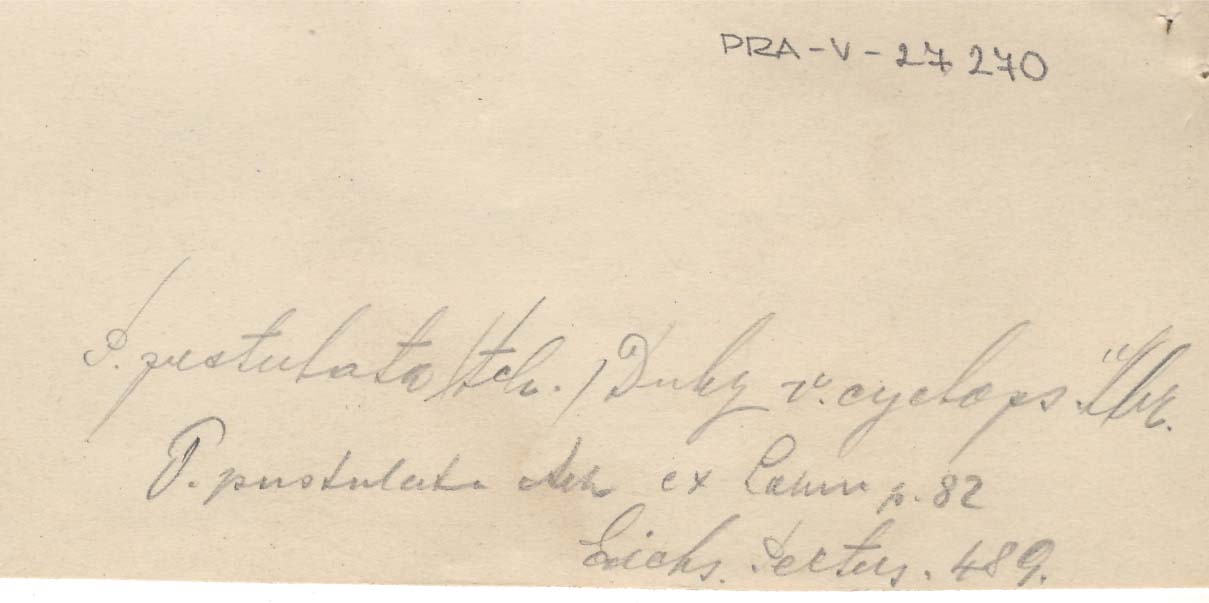 PRA-V-27 270
P. pustulata (Ach.) Duby v. cyclops
P. pustulata Ach ex Lamm p. 82
Erichs. Pertus. 489.